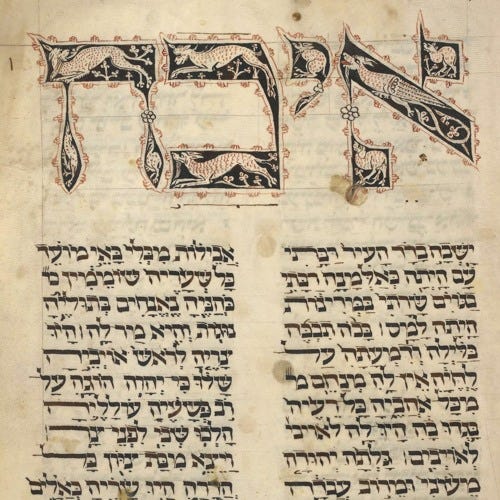 איכה
ישבה בדד העיר רבתי
עם היתה כאלמנה רבתי
בגוים שרתי במדינות
היתה למס׃ בכה תבכה
בלילה ודמעתה על
לחיה אין לה מנחם מ
מכל אהביה כל רעיה
בגדו בה היו לה
לאיבים׃ גלתה יהודה
מעני ומרוב עבדה
אבילות מבלי באי מועד
כל שעריה שוממין כ
כהניה נאנחים בתולתיה
נוגות והיא מר לה׃ היו
צריה לראש אויביה
שלו כי יהוה הוגה על
רב פשעיה עולליה
הלכו שבי לפני צר׃
ויצא מבת ציון כל
הדרה היו שריה